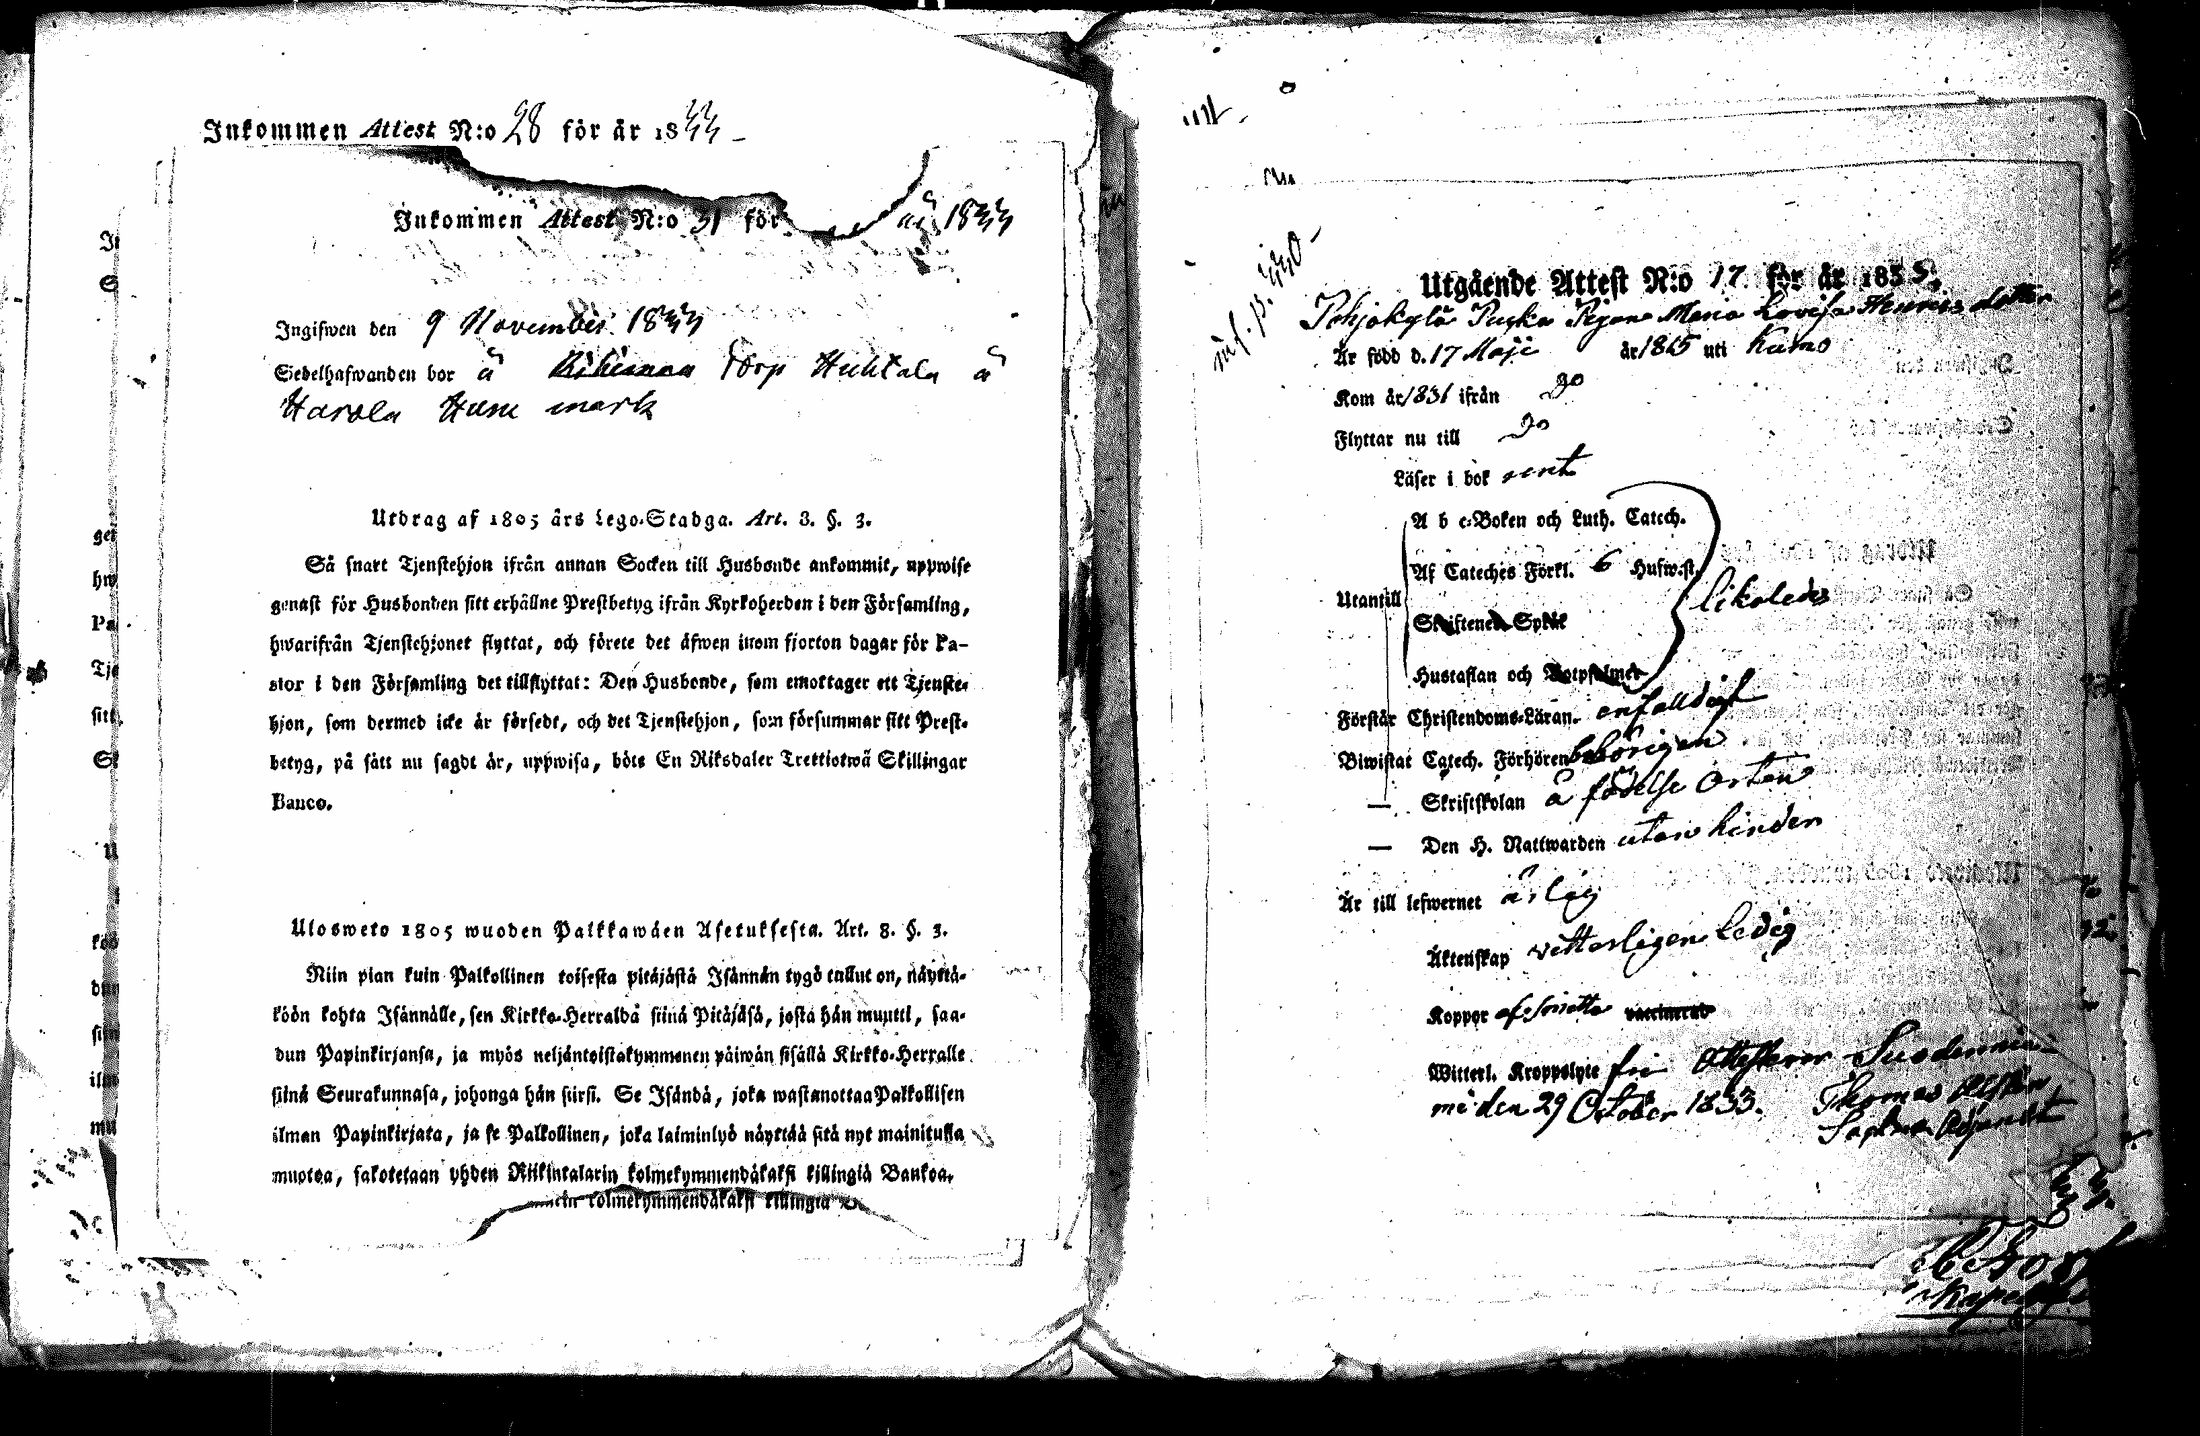 Inkommen Attest N:o 28 för år 1833
Inkommen Attest N:o 31 för år 1833
Ingifwen den 9 November 1833
Sedelhafwanden bor å Torp Huhtala å
Harola Hem mark
Utdrag af 1805 års Lego-Stadga. Art. 3. §. 3.
Så snart Tjenstehjon ifrån annan Socken till Husbonde ankommit, uppwise
genast för Husbonden sitt erhållne Prestbetyg ifrån Kyrkoherden i den Församling,
hwarifrån Tjenstehjonet flyttat, och förete det äfwen inom fjorton dagar för Pa-
stor i den Församling det tillflyttat: Den Husbonde, som emottager ett Tjenste-
hjon, som dermed icke är försedt, och det Tjenstehjon, som försummar sitt Prest-
betyg, på sätt nu sagdt är, uppwisa, böte En Riksdaler Trettiotwå Skillingar
Banco.
Ulosweto 1805 wuoden Palkkawäen Asetuksesta. Art. 8. §. 3.
Niin pian kuin Palkollinen toisesta pitäjästä Isännän tygö tullut on, näyttä-
köön kohta Isännälle, sen Kirkko-Herralda siinä Pitäjäsä, josta hän muutti, saa-
dun Papinkirjansa, ja myös neljäntoistakymmenen päiwän sisällä Kirkko-Herralle
siinä Seurakunnasa, johonga hän siirsi. Se Isändä, joka wastanottaa Palkollisen
ilman Papinkirjata, ja se Palkollinen, joka laiminlyö näyttää sitä nyt mainitulla
muotoa, sakotetaan yhden Riikintalarin kolmekymmendäkaksi killingiä Bankoa.
kolmekymmendäkaksi killingiä
inf. p. 330
Utgående Attest N:o 17 för år 1833.
Pohjakylä Puska Pigan Maria Lovisa Henrics dotter
Är född d. 17 Maji år 1815 uti Kumo
Kom år 1831 ifrån do
Flyttar nu till do
Läser i bok rent
A b c-Boken och Luth. Catech.
Af Cateches Förkl. 6 Hufw.st.
Utantill
likaledes
Skriftenes Språk
Hustaflan och Botpsalmer
Förstår Christendoms-Läran. enfalldigt
Biwistat Catech. Förhören behörigen
— Skriftskolan å födelse Orten
— Den H. Nattwarden utan hinder
Är till lefwernet ärlig
Äktenskap vetterligen ledig
Koppor af Smitta vaccinerad
Witterl. Kroppslyte fri Attesterar Suodennie-
mi den 29 October 1833. Thomas